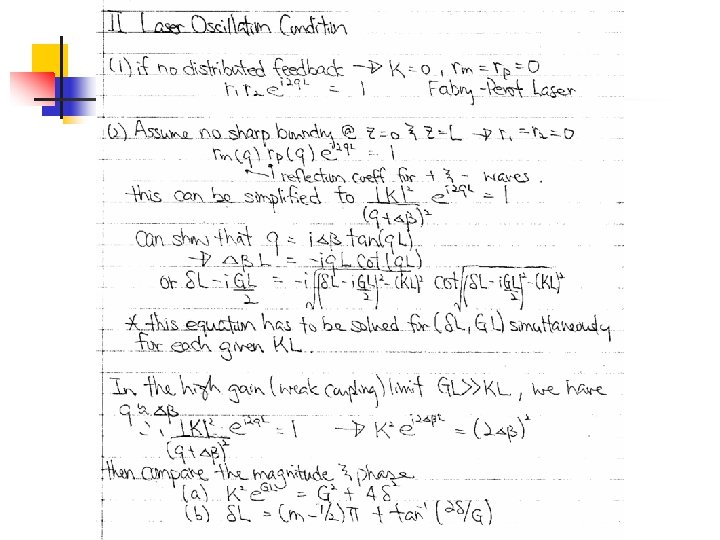 II Laser Oscillation Condition
(1) if no distributed feedback → K=0, rm=rp=0
r1r2e^{i2qL} = 1 Fabry-Perot Laser
(2) Assume no sharp boundry @ z=0 & z=L → r1=r2=0
rm(q) rp(q) e^{i2qL} = 1
reflection coeff for + & - waves.
this can be simplified to |K|²/(q+Δβ)² e^{i2qL} = 1
Can show that q = iΔβ tan(qL)
→ ΔβL = -iqL cot(qL)
or δL-iGL/2 = -i√((δL-iGL/2)²-(KL)²) cot√((δL-iGL/2)²-(KL)²)
* this equation has to be solved for (δL, GL) simultaneously
for each given KL.
In the high gain (weak coupling) limit GL>>KL, we have
q≈Δβ
∴ |K|²/(q+Δβ)² e^{i2qL} = 1 → K²e^{i2ΔβL} = (2Δβ)²
then compare the magnitude & phase
(a) K²e^{GL} = G² + 4δ²
(b) δL = (m-1/2)π + tan⁻¹(2δ/G)